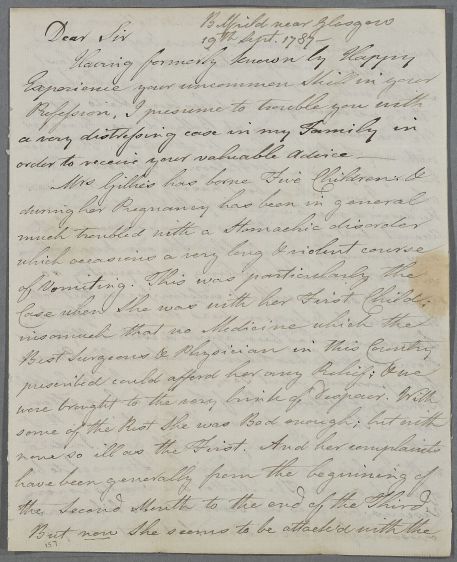 near Glasgow
Dear Sir 19th Sept. 1787
Having formerly known by Happy
Experience your uncommon Skill in your
Profession, I presume to trouble you with
a very distressing case in my Family in
order to receive your valuable Advice
Mrs Gillies has borne Five Children: &
during her Pregnancy has been in general
much troubled with a Stomachic disorder
which occasions a very long & violent course
of Vomiting. This was particularly the
Case when She was with her First Child;
insomuch that no Medicine which the
Best Surgeons & Physician in this Country
prescribed could afford her any Relief; & we
were brought to the very brink of Despair. With
some of the Rest She was Bad enough; but with
none so ill as the First. And her complaints
have been generally from the beginning of
the Second Month to the end of the Third.
But now She seems to be attack'd with the
157